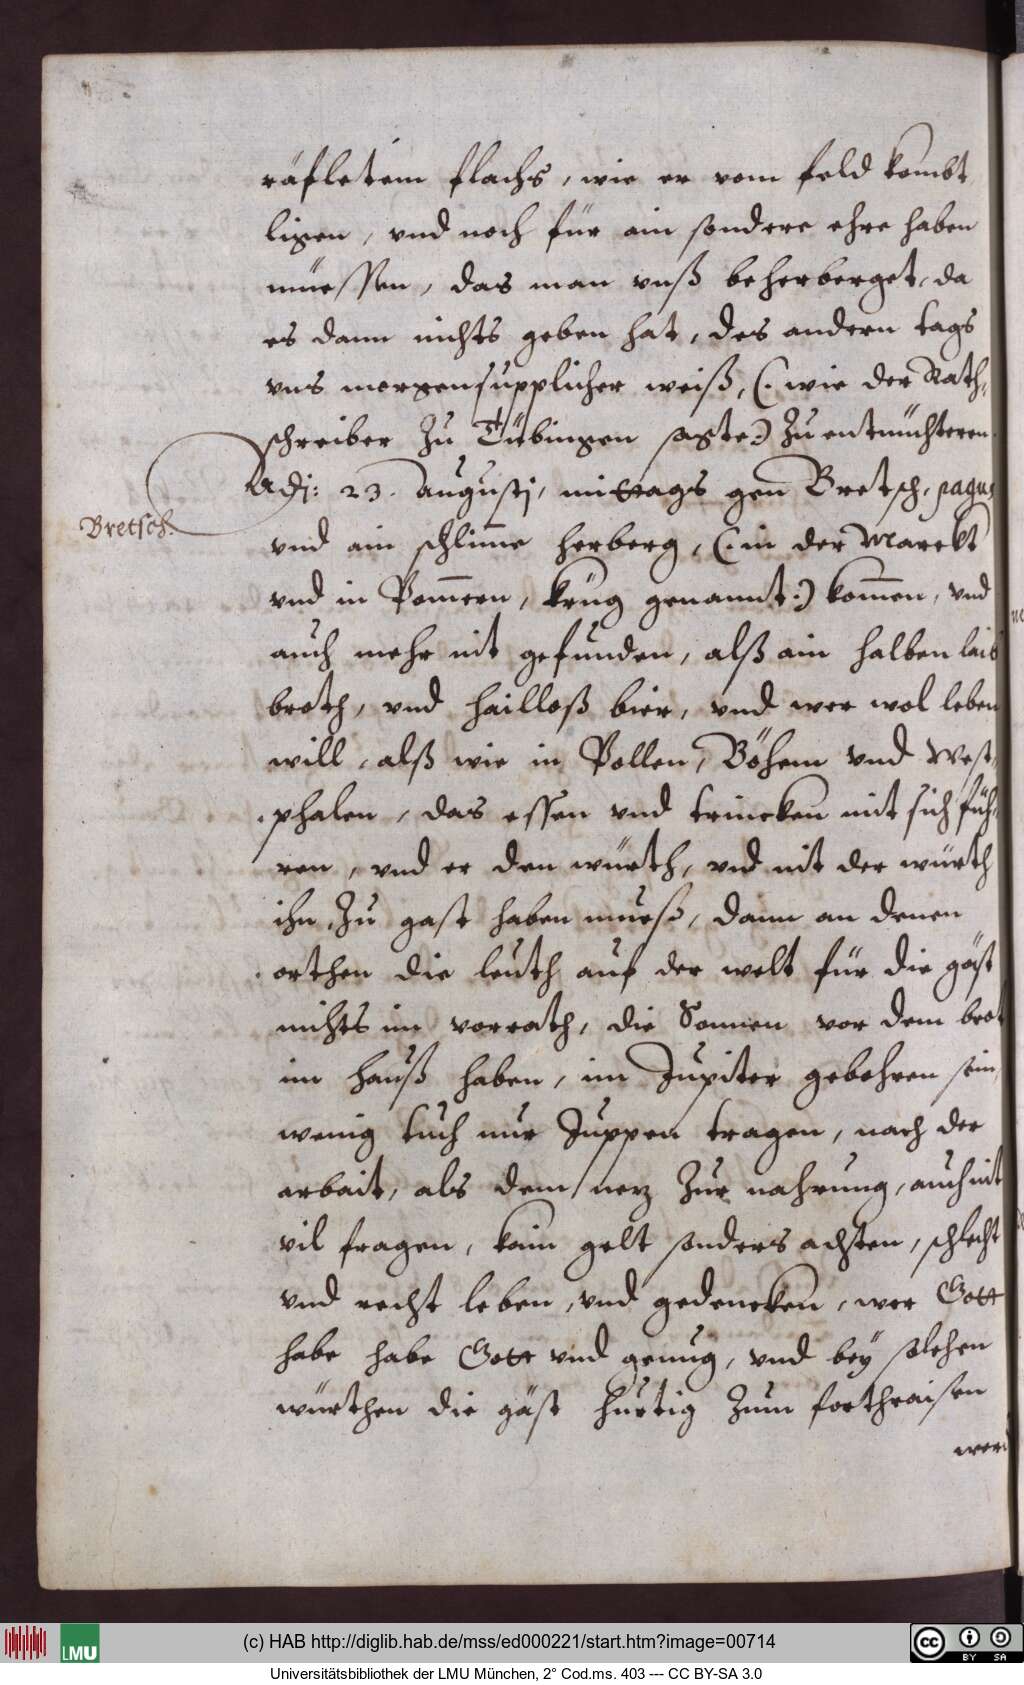 räfletem flachs, wie er vom feld kombt
ligen, vnd noch für ain sondere ehre haben
müessen, das man vnß beherberget, da
es dann nichts geben hat, des andern tags
vns morgensupplicher weiß, (: wie der Rath-
schreiber zu Tübingen sagte:) zu entnüchteren.
Adj: 23. Augustj, mittags gen Bretsch, pagus
Bretsch.
vnd ain schlim̄e herberg, (: in der Marckt
vnd in Pom̄ern, krüg genannt:) kom̄en, vnd
auch mehr nit gefunden, alß ain halben laib
broth, vnd hailloß bier, vnd wer wol leben
will, alß wie in Pollen, Böhem vnd West-
phalen, das essen vnd trincken mit sich füh-
ren, vnd er den würth, vnd nit der würth
ihn, zu gast haben mueß, dann an denen
orthen die leuth auf der welt für die gäst
nichts im vorrath, die Sonnen vor dem brot
im hauß haben, im Jupiter gebohren sein,
wenig tuch nur Juppen tragen, nach der
arbait, als dem nerz zur nahrung, auch nit
vil fragen, kain gelt sonders achten, schlecht
vnd recht leben, vnd gedencken, wer Gott
habe habe Gott vnd genug, vnd bey solchen
würthen die gäst hurtig zum forthraisen
werd
(c) HAB http://diglib.hab.de/mss/ed000221/start.htm?image=00714
LMU
cc BY SA
Universitätsbibliothek der LMU München, 2° Cod.ms. 403 --- CC BY-SA 3.0